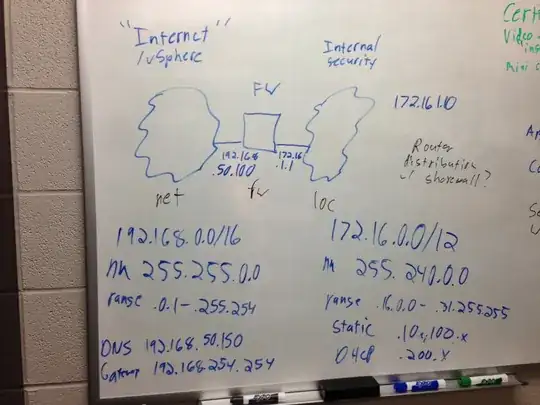 "Internet"
/vSphere
Internal
security
FW
172.16.1.10
192.168
.50.100
172.16
.1.1
net
fw
loc
Router
distribution
w/ shorewall?
192.168.0.0/16
nm 255.255.0.0
range .0.1 - .255.254
DNS 192.168.50.150
Gateway 192.168.254.254
172.16.0.0/12
nm 255.240.0.0
range .16.0.0 - .31.255.255
static
.100.x
DHCP .200.x
Video
mini